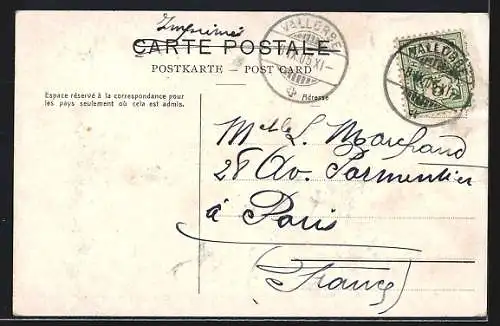 Imprimés
CARTE POSTALE
POSTKARTE — POST CARD
Espace réservé à la correspondance pour
les pays seulement où cela est admis.
Adresse
VALLORBE
VALLORBE
Melle L. Marchand
28 Av. Parmentier
à Paris
(France)